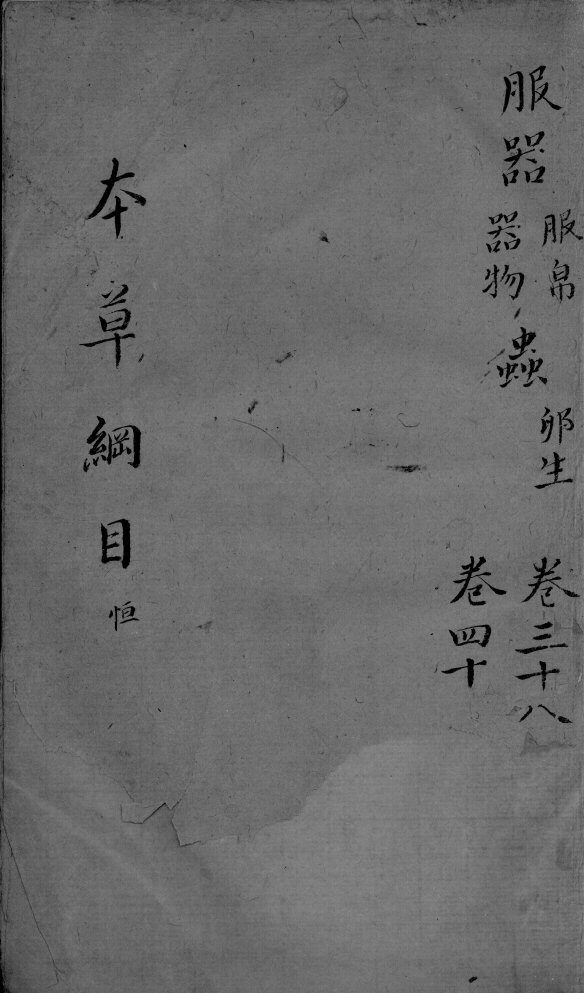 服器
服帛
器物
蟲
卵生
卷三十八
卷四十
本草綱目 恒